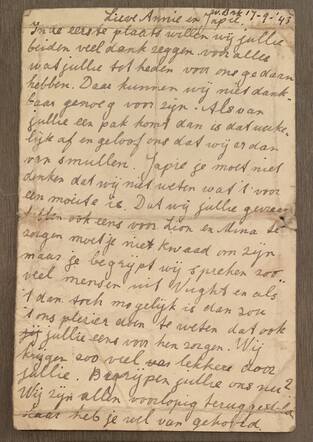 W. Brk 17-9-'43
Lieve Annie en Japie,
In de eerste plaats willen wij jullie
beiden veel dank zeggen voor alles
wat jullie tot heden voor ons gedaan
hebben. Daar kunnen wij niet dank-
baar genoeg voor zijn. Als van
jullie een pak komt dan is dat
af en geloof ons dat wij er dan
van smullen. Japie je moet niet
denken dat wij niet weten wat 't voor
een moeite is. Dat wij jullie
ook eens voor Lion en Mina te
zorgen moet je niet kwaad om zijn
maar je begrijpt wij spreken zoo
veel mensen uit Vught en als
't dan toch mogelijk is dan zou
't ons plezier doen te weten dat ook
jullie eens voor hen zorgen. Wij
krijgen zoo veel lekkers door
jullie. Begrijpen jullie ons nu?
Wij zijn allen voorlopig teruggesteld
daar heb je wel van gehoord